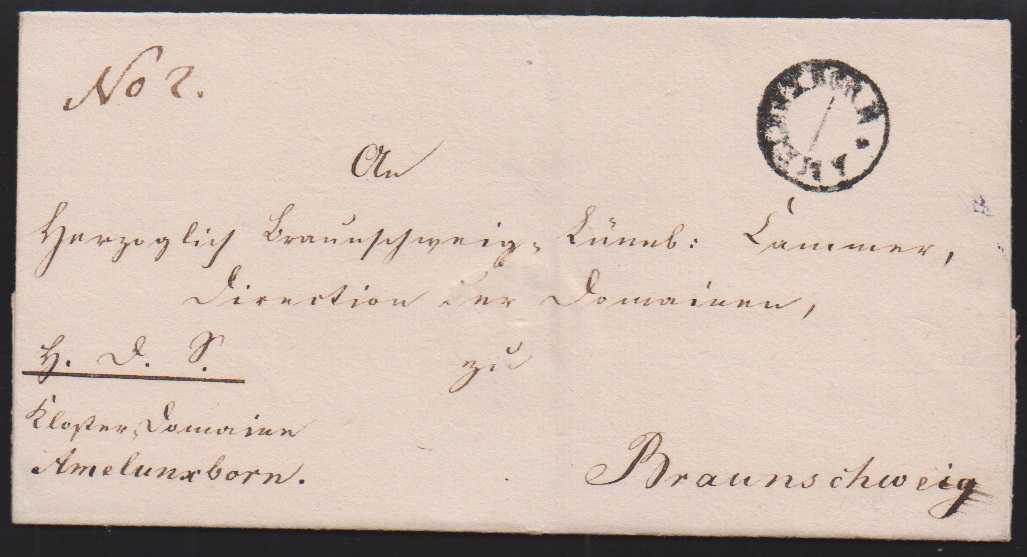 No 2.
An
Herzoglich Braunschweig-Lüneb: Cammer,
Direction der Domainen,
H. D. S.
zu
Kloster-Domaine
Amelunxborn.
Braunschweig